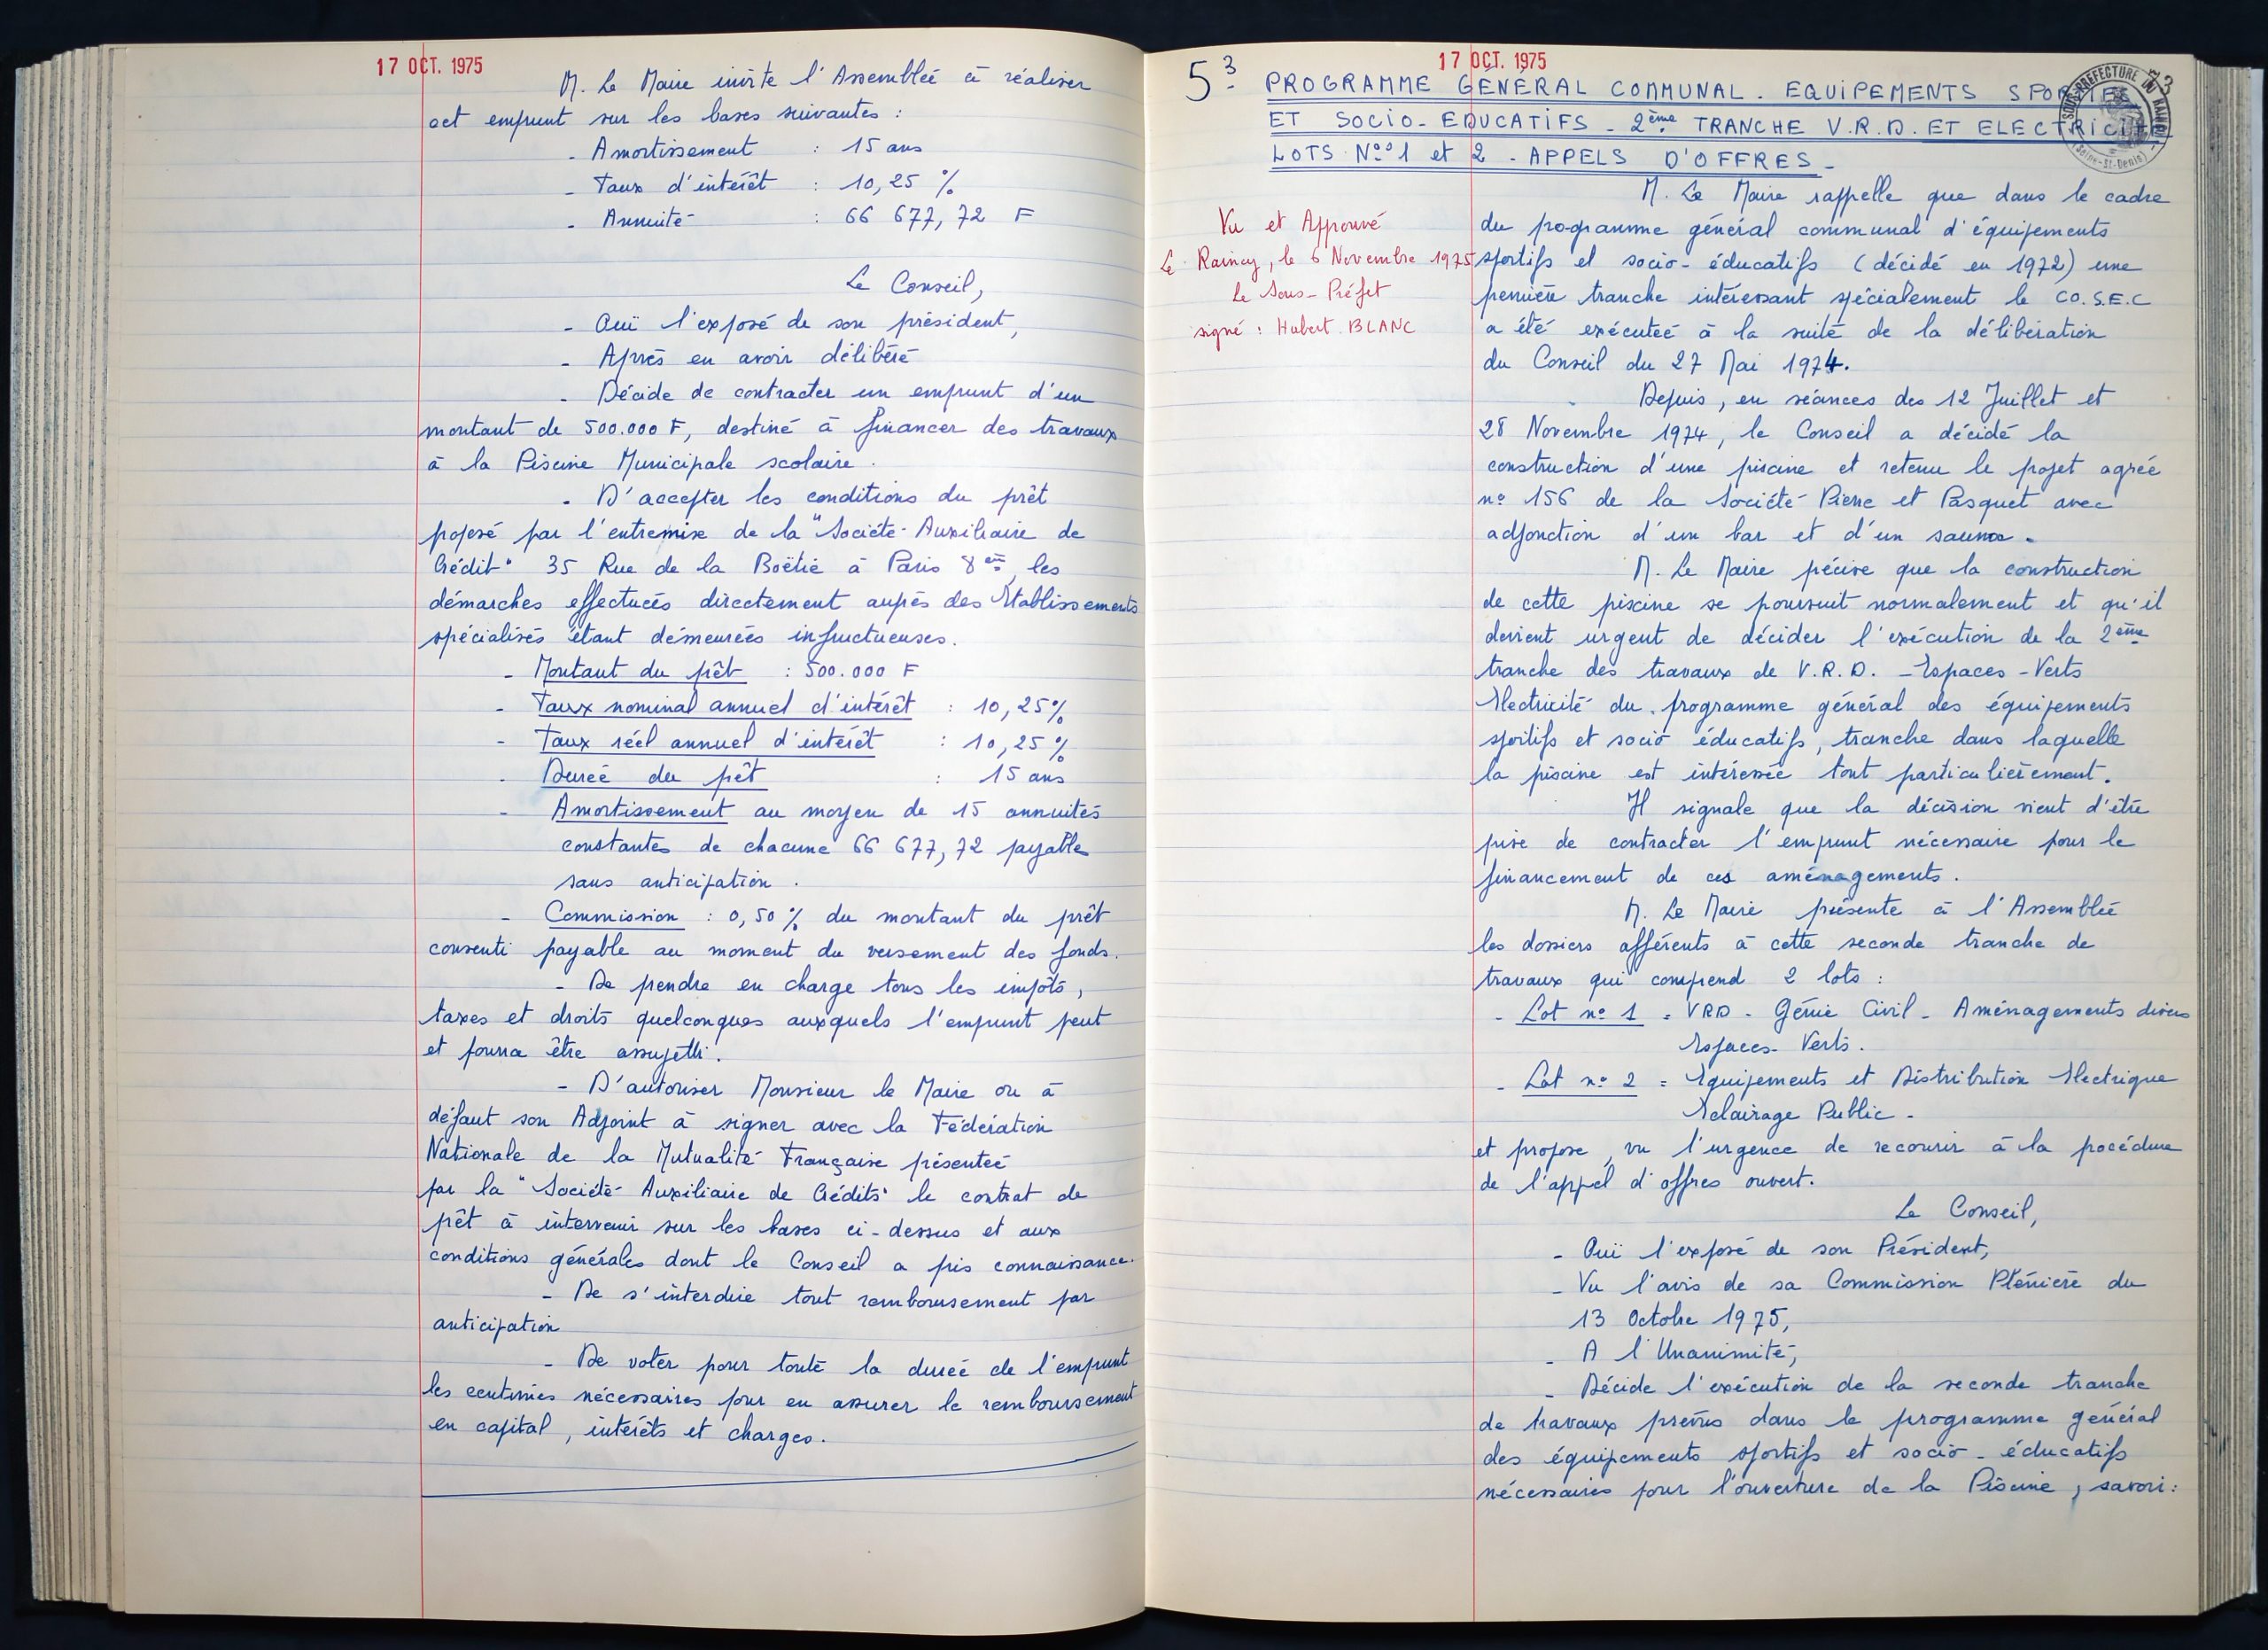 17 OCT. 1975
M. Le Maire invite l'Assemblée à réaliser
cet emprunt sur les bases suivantes :
- Amortissement : 15 ans
- Taux d'intérêt : 10,25 %
- Annuité : 66 677,72 F
Le Conseil,
- Ouï l'exposé de son président,
- Après en avoir délibéré
- Décide de contracter un emprunt d'un
montant de 500.000 F, destiné à financer des travaux
à la Piscine Municipale scolaire.
- D'accepter les conditions du prêt
proposé par l'entremise de la "Société Auxiliaire de
Crédit" 35 Rue de la Boëtie à Paris 8ème, les
démarches effectuées directement auprès des Etablissements
spécialisés étant demeurées infructueuses.
- Montant du prêt : 500.000 F
- Taux nominal annuel d'intérêt : 10,25%
- Taux réel annuel d'intérêt : 10,25 %
- Durée du prêt : 15 ans
- Amortissement au moyen de 15 annuités
constantes de chacune 66 677,72 payable
sans anticipation.
- Commission : 0,50 % du montant du prêt
consenti payable au moment du versement des fonds.
- De prendre en charge tous les impôts,
taxes et droits quelconques auxquels l'emprunt peut
et pourra être assujetti.
- D'autoriser Monsieur le Maire ou à
défaut son Adjoint à signer avec la Fédération
Nationale de la Mutualité Française présentée
par la "Société Auxiliaire de Crédits" le contrat de
prêt à intervenir sur les bases ci-dessus et aux
conditions générales dont le Conseil a pris connaissance.
- De s'interdire tout remboursement par
anticipation
- De voter pour toute la durée de l'emprunt
les centimes nécessaires pour en assurer le remboursement
en capital, intérêts et charges.
17 OCT. 1975
53
5 3- PROGRAMME GÉNÉRAL COMMUNAL. EQUIPEMENTS SPORTIFS
ET SOCIO-EDUCATIFS - 2ème TRANCHE V.R.D. ET ELECTRICITE
LOTS Nos 1 et 2 - APPELS D'OFFRES -
SOUS-PREFECTURE DU RAINCY
(Seine-St-Denis)
Vu et Approuvé
Le Raincy, le 6 Novembre 1975
Le Sous-Préfet
signé : Hubert BLANC
M. Le Maire rappelle que dans le cadre
du programme général communal d'équipements
sportifs et socio-éducatifs (décidé en 1972) une
première tranche intéressant spécialement le CO.S.E.C
a été exécutée à la suite de la délibération
du Conseil du 27 Mai 1974.
Depuis, en séances des 12 Juillet et
28 Novembre 1974, le Conseil a décidé la
construction d'une piscine et retenu le projet agréé
n° 156 de la Société Pierre et Pasquet avec
adjonction d'un bar et d'un sauna.
M. Le Maire précise que la construction
de cette piscine se poursuit normalement et qu'il
devient urgent de décider l'exécution de la 2ème
tranche des travaux de V.R.D. - Espaces-Verts
Electricité du programme général des équipements
sportifs et socio éducatifs, tranche dans laquelle
la piscine est intéressée tout particulièrement.
Il signale que la décision vient d'être
prise de contracter l'emprunt nécessaire pour le
financement de ces aménagements.
M. Le Maire présente à l'Assemblée
les dossiers afférents à cette seconde tranche de
travaux qui comprend 2 lots :
- Lot n° 1 = VRD - Génie Civil - Aménagements divers
Espaces-Verts.
- Lot n° 2 = Equipements et Distribution Electrique
Eclairage Public -
et propose, vu l'urgence de recourir à la procédure
de l'appel d'offres ouvert.
Le Conseil,
- Ouï l'exposé de son Président,
- Vu l'avis de sa Commission Plénière du
13 Octobre 1975,
- A l'Unanimité,
- Décide l'exécution de la seconde tranche
de travaux prévus dans le programme général
des équipements sportifs et socio-éducatifs
nécessaires pour l'ouverture de la Piscine, savoir :